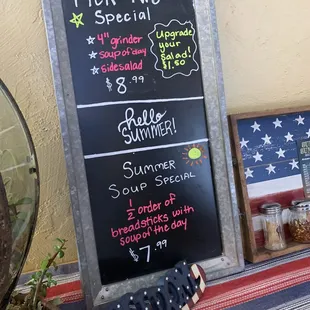 Special
4" grinder
soup of day
side salad
$8.99
Upgrade
your
Salad!
$1.50
hello
SUMMER!
SUMMER
SOUP SPECIAL
1/2 order of
breadsticks with
soup of the day
$7.99